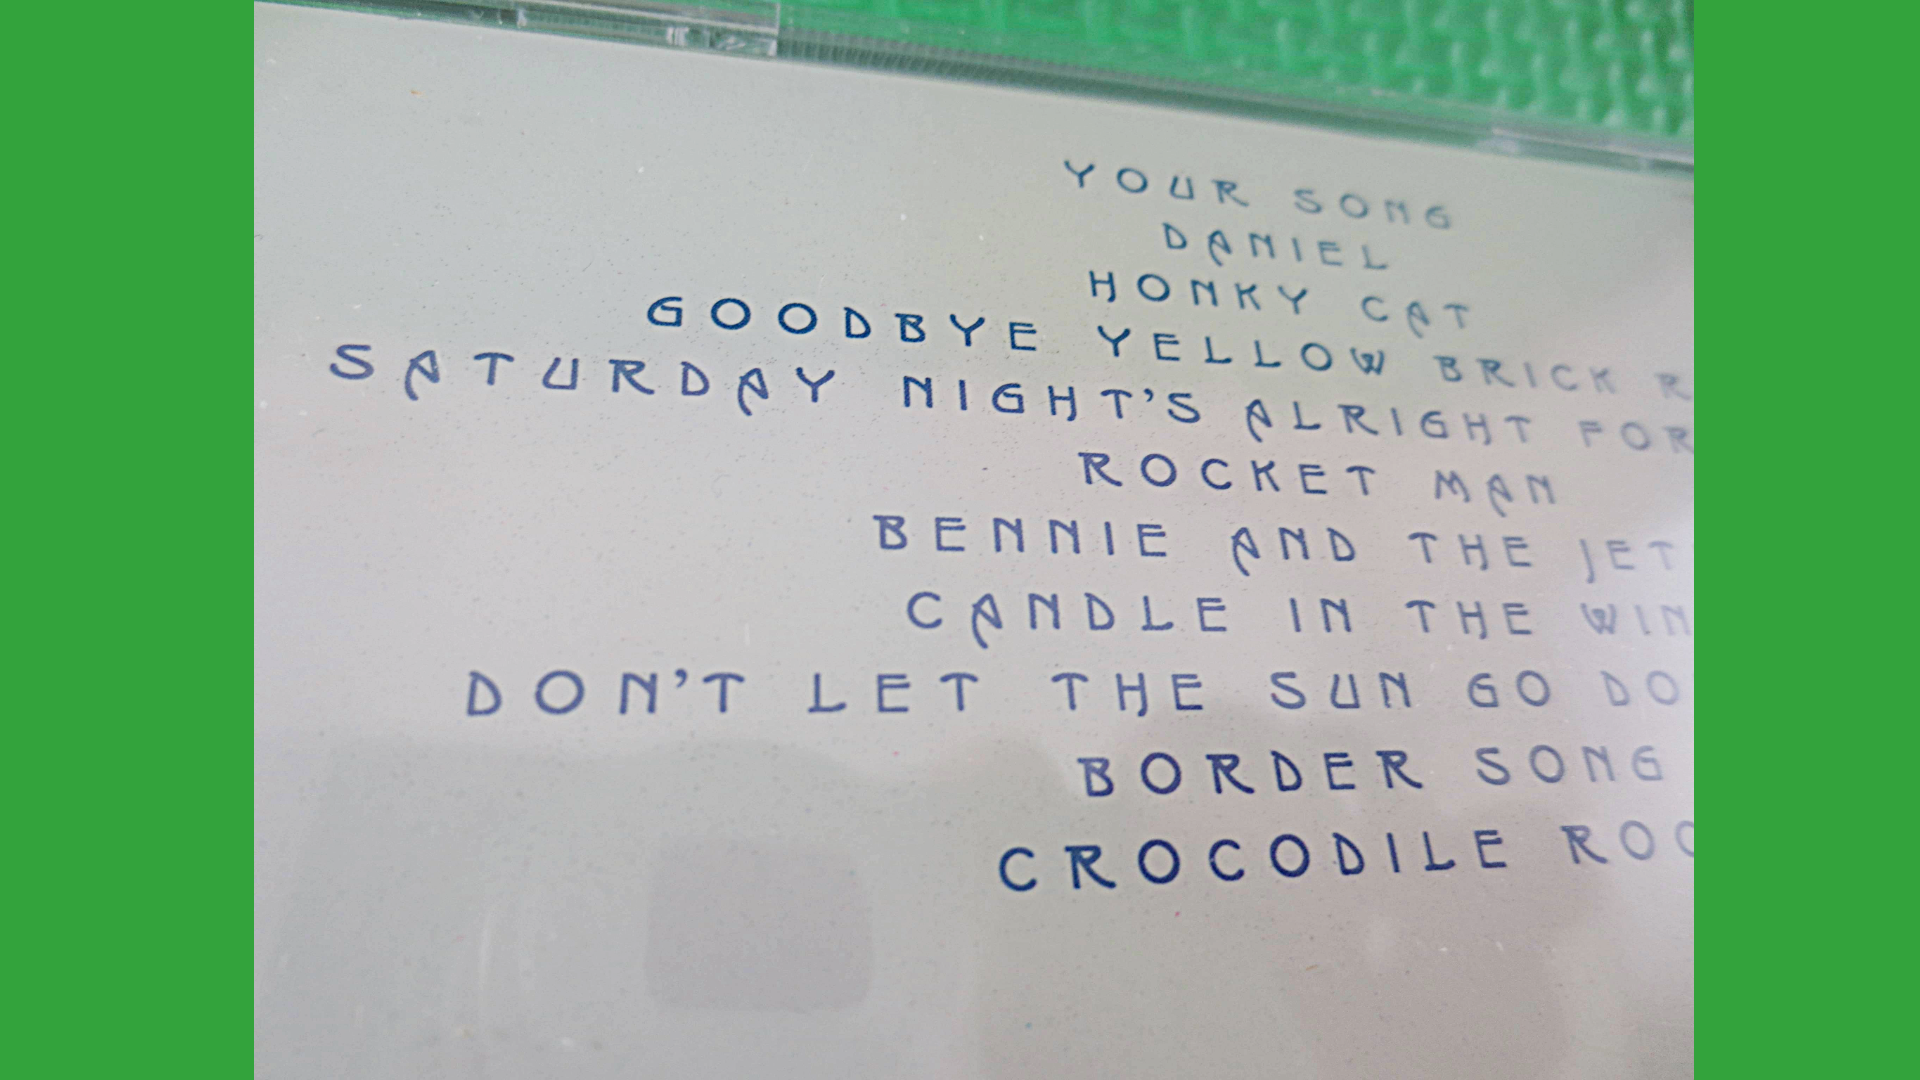 YOUR SONG
DANIEL
HONKY CAT
GOODBYE YELLOW BRICK R
SATURDAY NIGHT'S ALRIGHT FOR
ROCKET MAN
BENNIE AND THE JET
CANDLE IN THE WIN
DON'T LET THE SUN GO DO
BORDER SONG
CROCODILE ROC